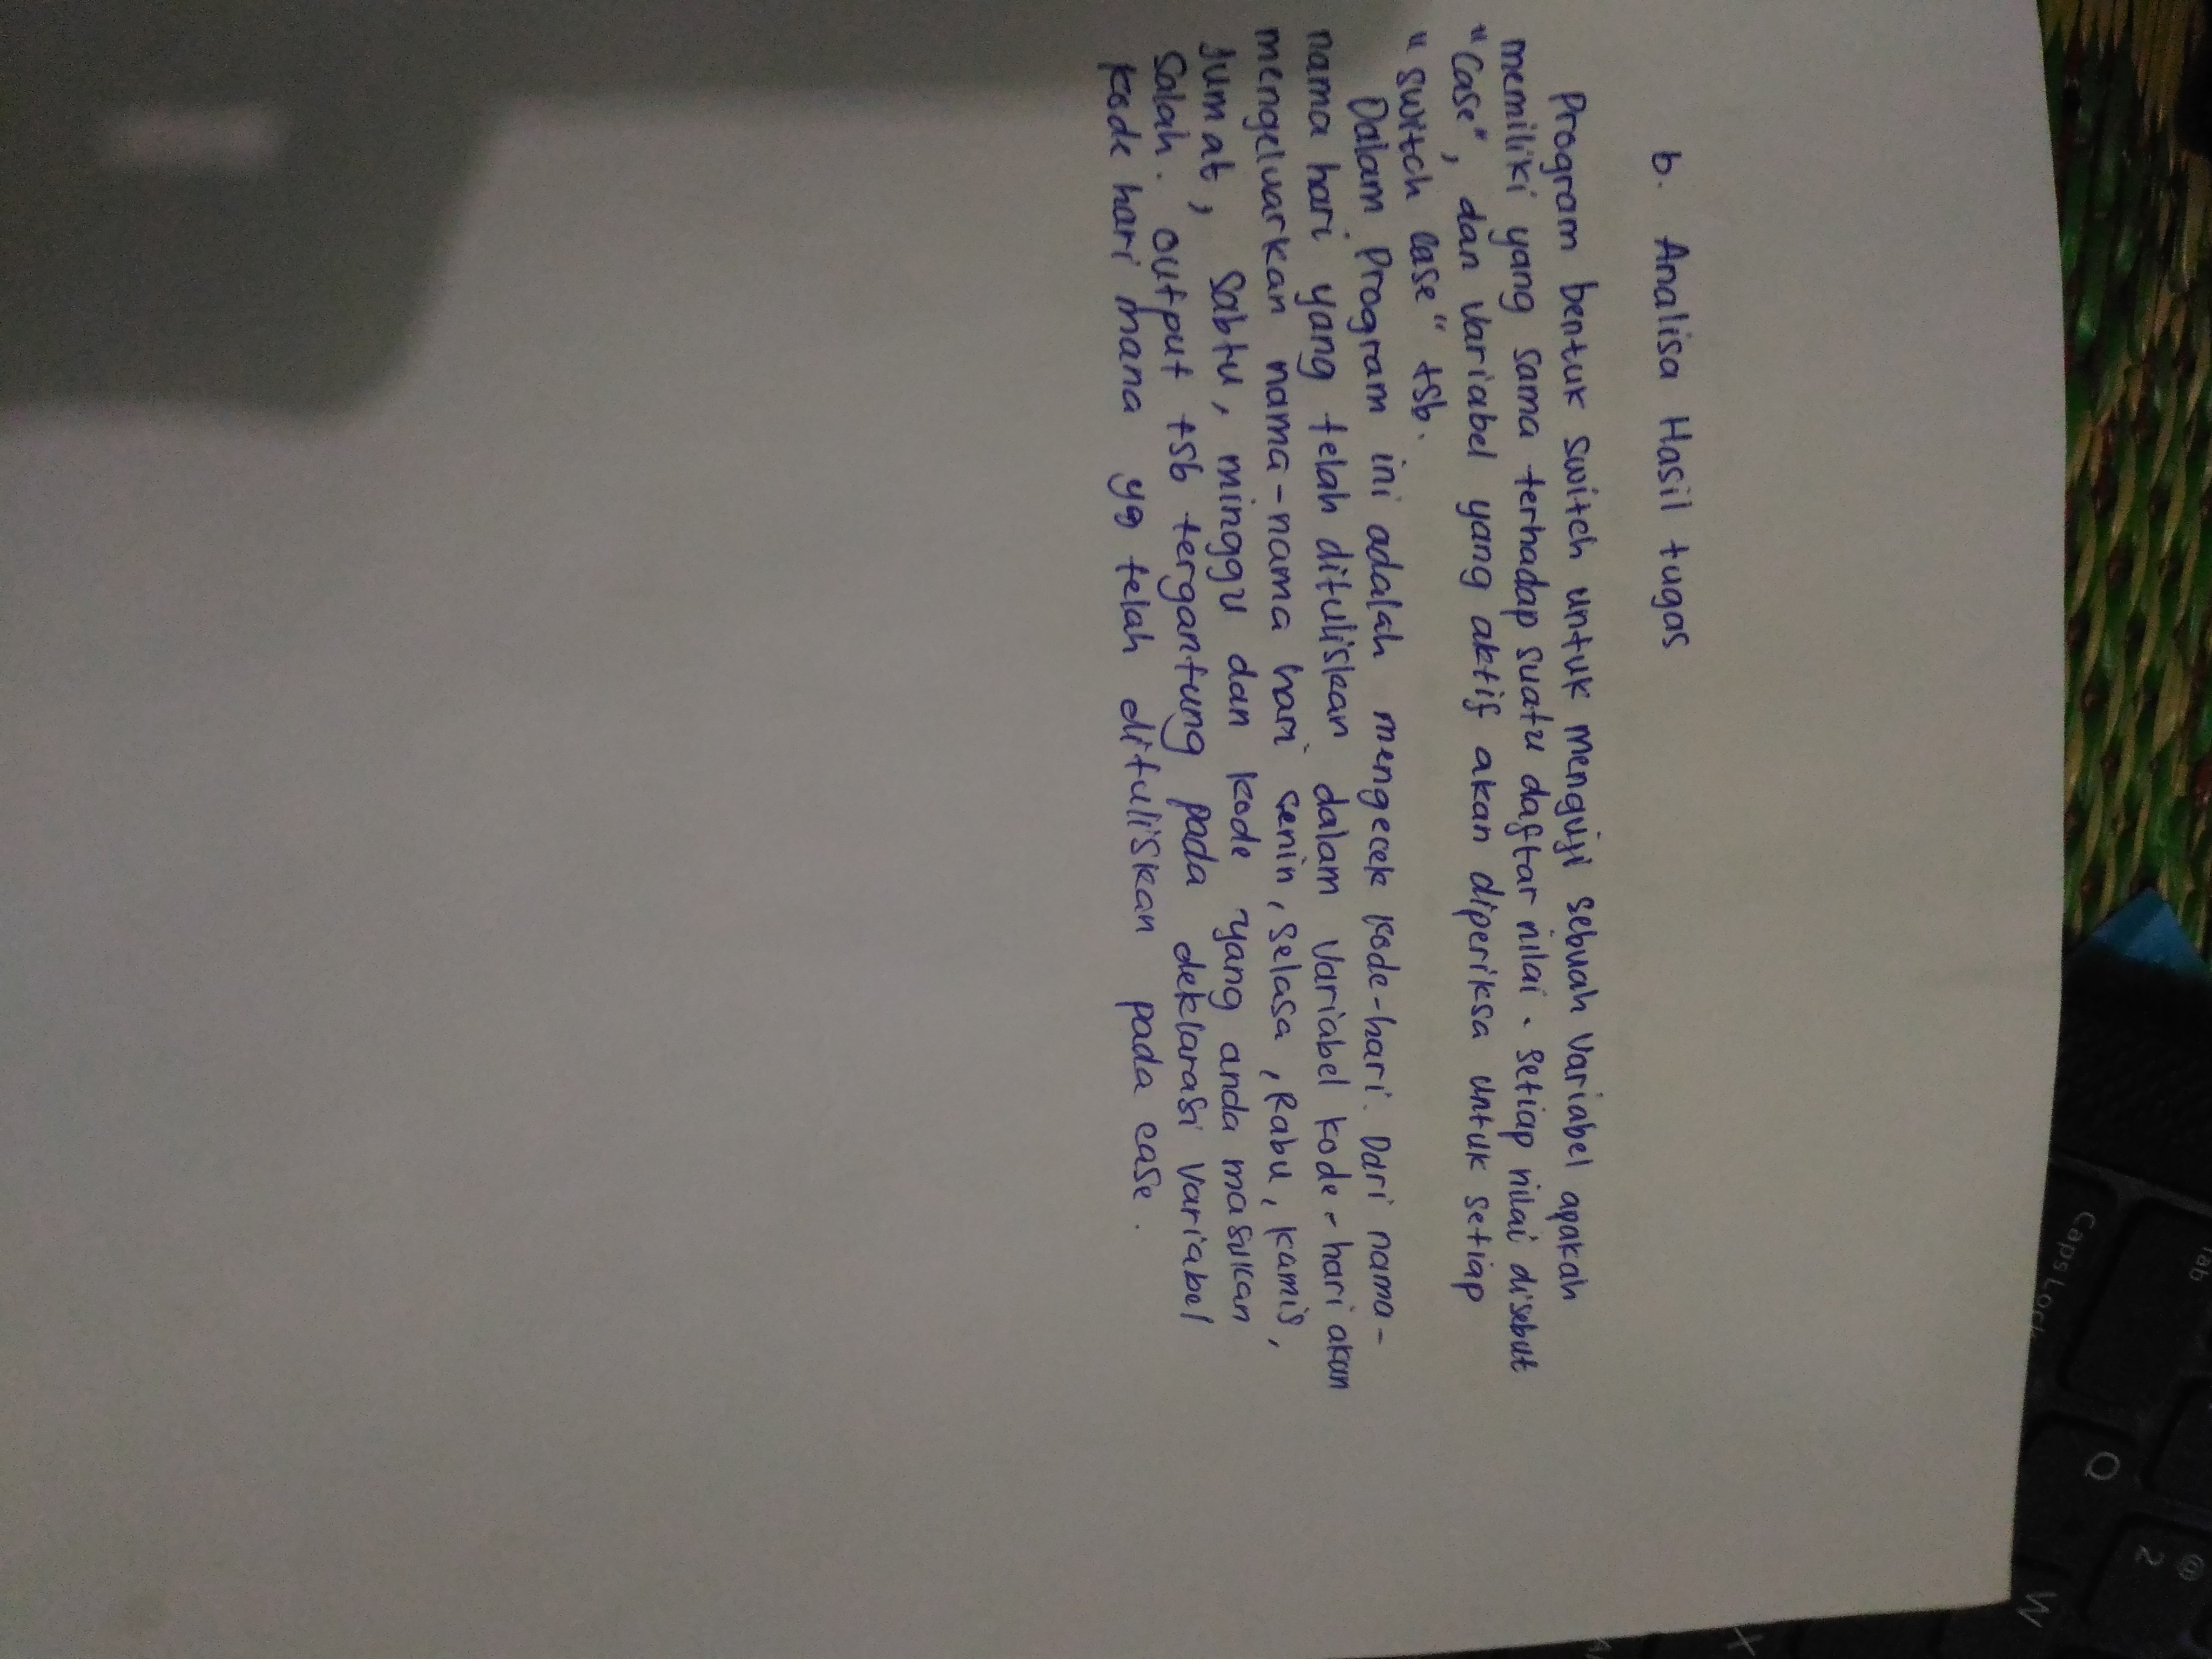 b. Analisa Hasil tugas
Program bentuk switch untuk menguji sebuah variabel apakah
memiliki yang sama terhadap suatu daftar nilai. Setiap nilai disebut
"case", dan variabel yang aktif akan diperiksa untuk setiap
"switch case" tsb.
Dalam Program ini adalah mengecek kode-hari. Dari nama-
nama hari yang telah dituliskan dalam variabel kode-hari akan
mengeluarkan nama-nama hari senin, selasa, Rabu, kamis,
Jumat, sabtu, minggu dan kode yang anda masukan
salah. output tsb tergantung pada deklarasi variabel
kode hari mana yg telah dituliskan pada case.
Tab
Caps Lock
Q
@
2
W
X